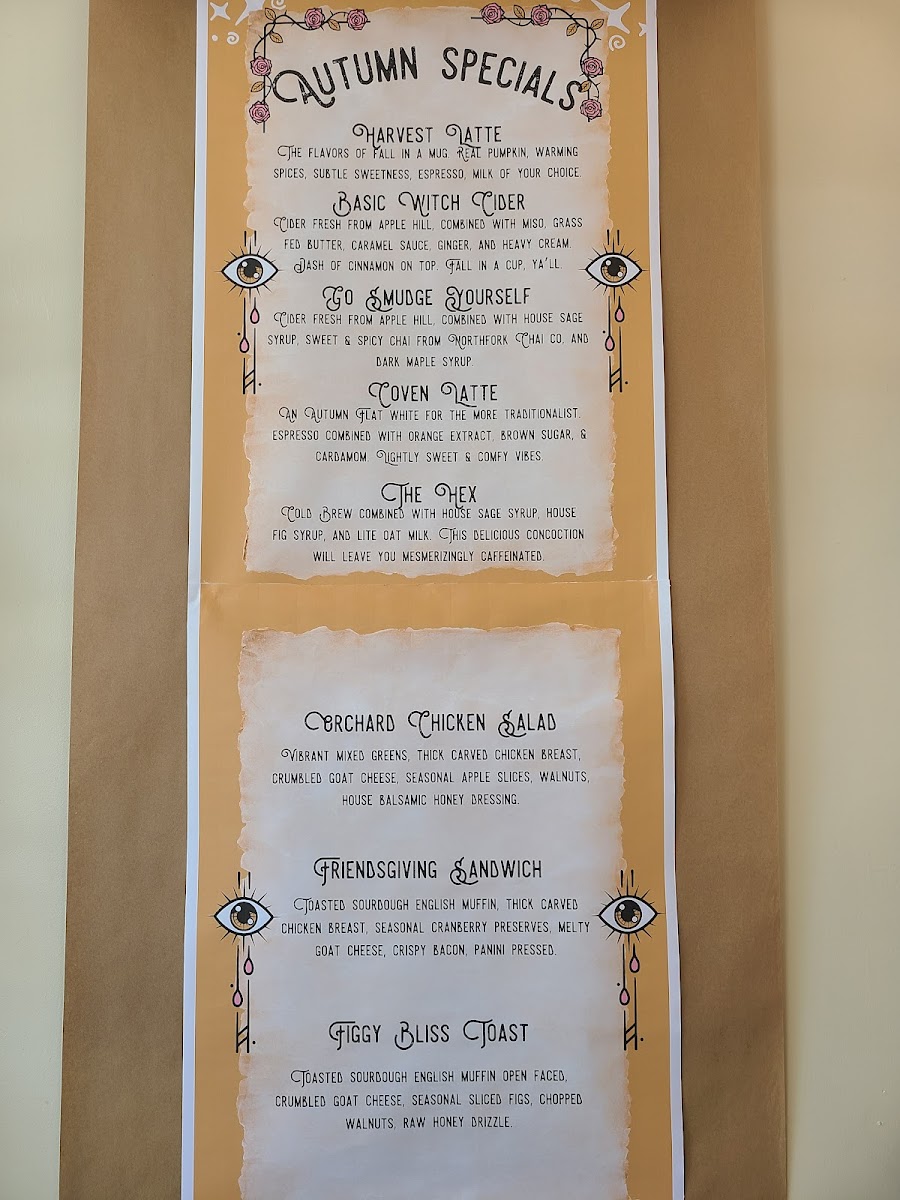 Autumn Specials
Harvest Latte
The flavors of fall in a mug. Real pumpkin, warming
spices, subtle sweetness, espresso, milk of your choice.
Basic Witch Cider
Cider fresh from Apple Hill, combined with miso, grass
fed butter, caramel sauce, ginger, and heavy cream.
Dash of cinnamon on top. Fall in a cup, ya'll.
Go Smudge Yourself
Cider fresh from Apple Hill, combined with house sage
syrup, sweet & spicy chai from Northfork Chai Co. and
dark maple syrup.
Coven Latte
An Autumn Flat white for the more traditionalist.
Espresso combined with orange extract, brown sugar, &
cardamom. Lightly sweet & comfy vibes.
The Hex
Cold Brew combined with house sage syrup, house
fig syrup, and lite oat milk. This delicious concoction
will leave you mesmerizingly caffeinated.
Orchard Chicken Salad
Vibrant mixed greens, thick carved chicken breast,
crumbled goat cheese, seasonal apple slices, walnuts,
house balsamic honey dressing.
Friendsgiving Sandwich
Toasted sourdough english muffin, thick carved
chicken breast, seasonal cranberry preserves, melty
goat cheese, crispy bacon, panini pressed.
Figgy Bliss Toast
Toasted sourdough english muffin open faced,
crumbled goat cheese, seasonal sliced figs, chopped
walnuts, raw honey drizzle.